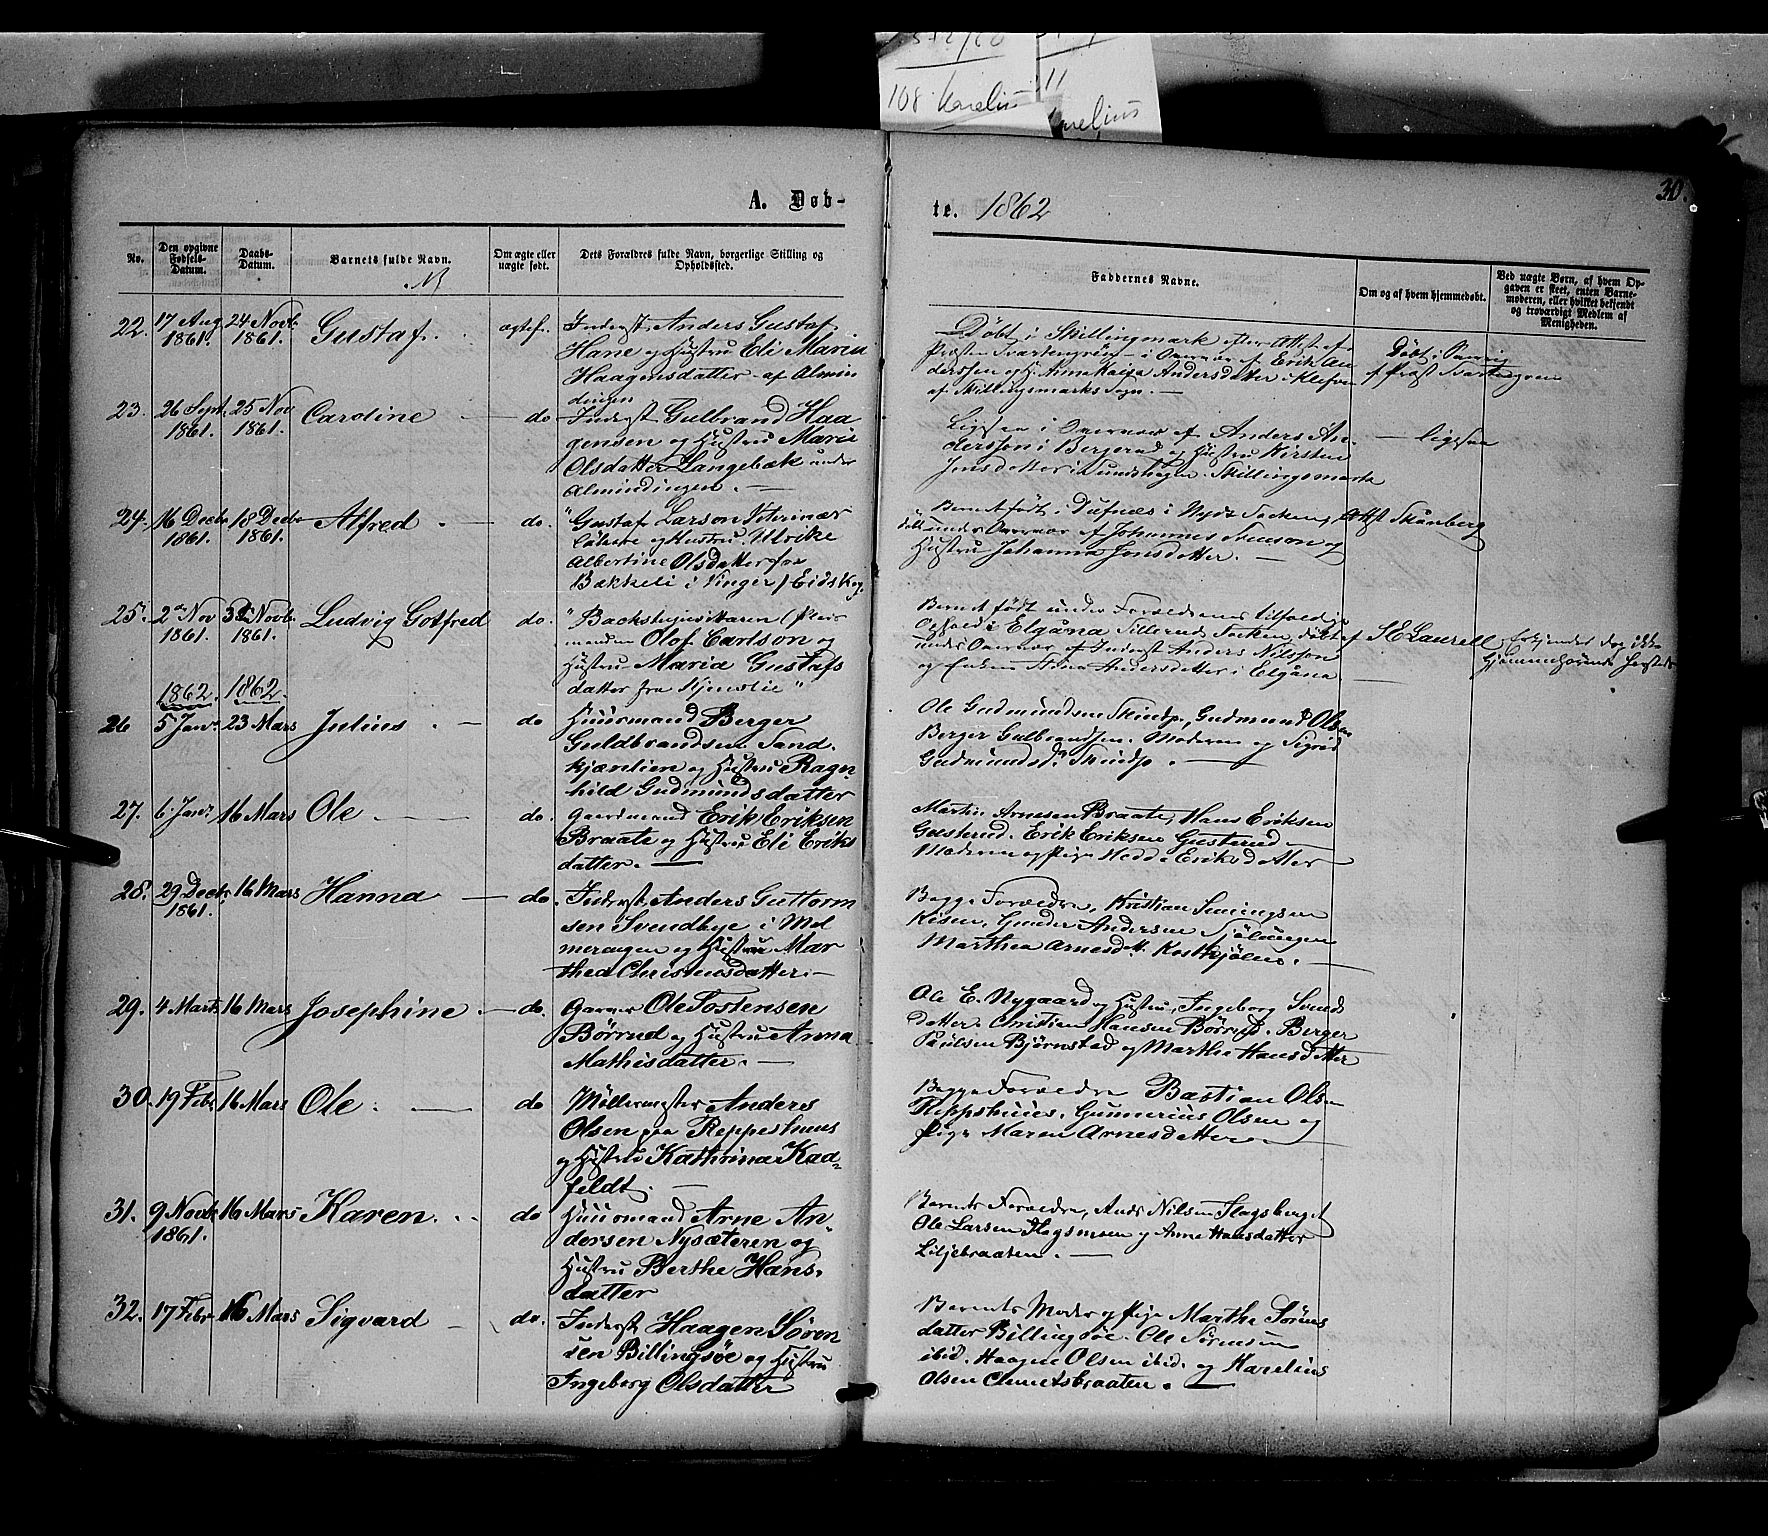 108 Karelius 11
Karelius
30.
A. Døb-
te. 1862
No.
Den opgivne Fødsels-Datum.
Daabs-Datum.
Barnets fulde Navn.
Om ægte eller uægte født.
Dets Forældres fulde Navn, borgerlige Stilling og Opholdssted.
Faddernes Navne.
Om og af hvem hjemmedøbt.
Ved uægte Børn, af hvem Opgaven er skeet, enten Barnemoderen, eller hvilket bekjendt og troværdigt Medlem af Menigheden.
22. 17 Aug 1861. 24 Novb. 1861. Gustaf. ægtef. Inderst Anders Gustaf
Hane og Hustru Eli Maria
Haagensdatter af Almin
dingen
Døbt i Skillingmark efter Attest af
Præsten Svartengren i Overvær af Erik An
derssen og H. Anna Kaisa Andersdatter i
af Skillingmarks Sogn.
Døbt i Sverrig
af Præst Svartengren
23. 26 Sept. 1861. 25 Nov 1861. Caroline do Inderst Gulbrand Haa
gensen og Hustru Marie
Olsdatter Langebæk under
Almindingen.
Ligesaa i Overvær af Anders An
dersson i Bergerud og Hustru Kirsten
Jensdatter i Sundshagen Skillingsmark
ligesaa
24. 16 Decbr 1861. 18 Decbr 1861. Alfred do. Gustaf Larson Veterinær
og Hustru Ulrike
Albertine Olsdatter fra
Bækkeli i Vinger / Eidskog.
Barnet født i i Socken,
døbt under Overvær af Johannes Svenson og
Hustru Johanna Jonsdatter.
Attst Skånberg
25. 2 Nov 1861. 3 Novb. 1861. Ludvig Gotfred do.
Olof Carlson og
Hustru Maria Gustafs
datter fra
Barnet født under Forældrenes tilfældige
Ophold i Elgåna Sillerud Socken, døbt af
under Overvær af Inderst Anders Nilsson
og Stina Andersdatter i Elgåna
S E Laurell
erkjendes dog ikke
hjemmehørende hersteds
1862. 1862.
26 5 Janr. 23 Mars Julius do Huusmand Berger
Guldbrandsen Sand.
kjærnlien og Hustru Ragn
hild Gudmundsdatter
Ole Gudmundsen Skinstp, Gudmund Olsen
Berger Gulbrandsen. Moderen og Sigrid
Gudmundsdr
27. 6 Janr. 16 Mars Ole do. Gaardmand Erik Eriksen
Braate og Hustru Eli Eriks
datter.
Martin Arnesen Braate, Hans Eriksen
Gusterud. Erik Eriksen Gusterud
Moderen og Pige Hedda Eriksdatter
28. 29 Decbr 1861. 16 Mars Hanna do. Inderst Anders Guttorm
sen Svendbye i Mel
merangen og Hustru Mar
thea Christensdatter.
Begge Forældre, Kristian Simingsen
Kisen, Gunder Andersen
Marthea Arnesdtt. Kostkjølen.
29. 4 Marts 16 Mars Josephine do. Garver Ole Tostensen
Børrud og Hustru Anna
Mathisdatter.
Ole E. Nygaard og Hustru, Ingeborg Svends
datter. Christian Hansen Børrud. Berger
Paulsen Bjørnstad og Marthe Hansdatter
30. 19 Febr 16 Mars Ole do Møllermester Anders
Olsen paa Reppeshuus
og Hustru Kathrina Kaa
feldt.
Begge Forældre Bastian Olsen
Reppshuus, Gunnerius Olsen og
Pige Maren Arnesdatter
31. 9 Novbr 1861. 16 Mars Karen. do Huusmand Arne An
dersen Nysæteren og
Hustru Berthe Hans.
datter
Barnets Forældre, Ands Nilsen Flagsberget
Ole Larsen Flagsmoen og Anne Hansdatter
Liljebraaten.
32. 17 Febr 16 Mars Sigvard do. Inderst Haagen Søren
sen Billingsøe og Hustru
Ingeborg Olsdatter
Barnets Moder og Pige Marthe Sørens
datter Billingsøe. Ole Sørensen
ibid. Haagen Olsen ibid. og Karelius
Olsen Clemetsbraaten.